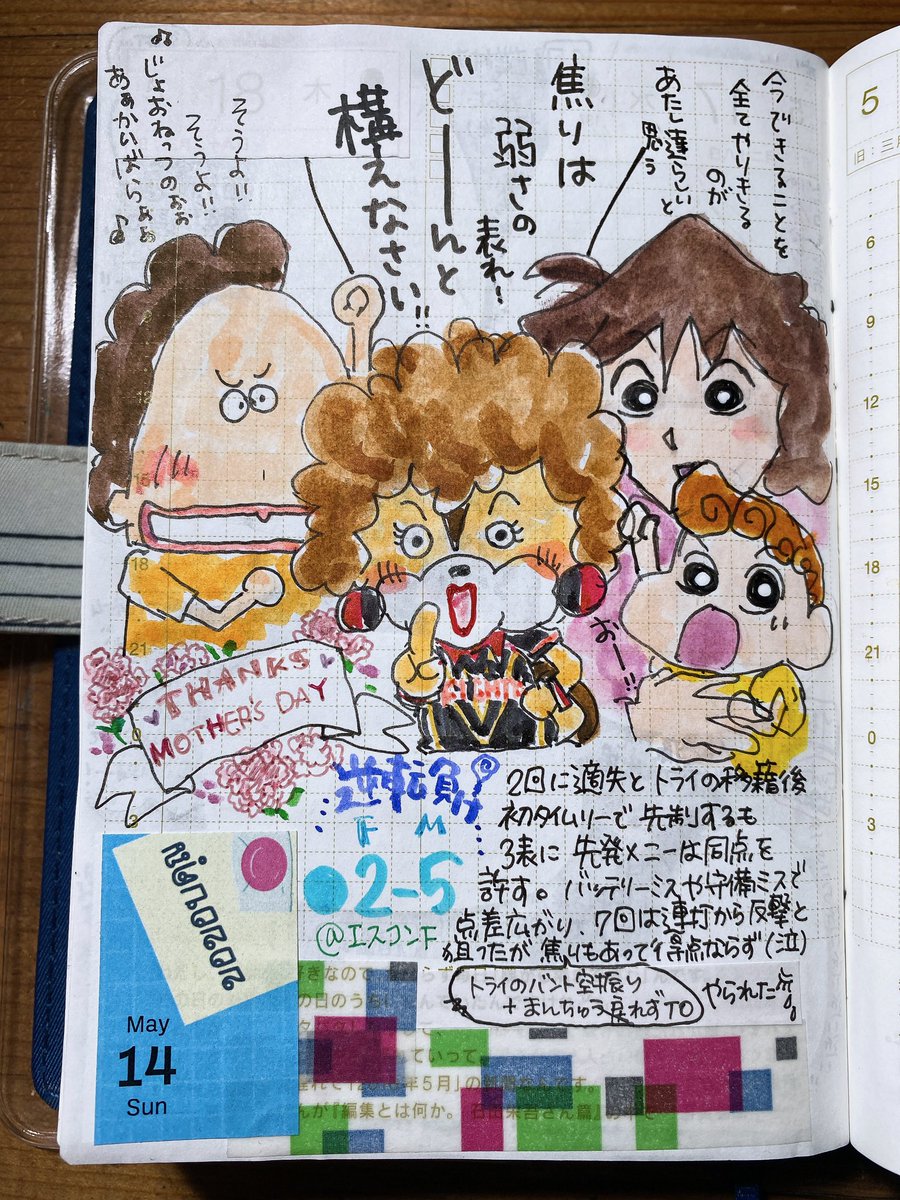 今できることを
全てやりきる
のが
あたし達らしいと
思う
焦りは
弱さの
表れ!
どーーんと
構えなさい!!
そうよ!!
そうよ!!
♪じょおねっつのぉぉ
あぁかいばらぁぁ♪
おーー!!
THANKS
MOTHER'S DAY
逆転負け
F M
●2-5
@エスコンF
2回に適失とトライの移籍後
初タイムリーで先制するも
3表に先発メニーは同点を
許す。バッテリーミスや守備ミスで
点差広がり、7回は連打から反撃と
狙ったが焦りもあって得点ならず(泣)
トライのバント空振り
+まんちゅう戻れずTO
やられた
May
14
Sun
5
旧:三月
6
9
12
15
18
21
0
3
15
18
21
3
ていって
年5月」の
んが「編集とは何か。